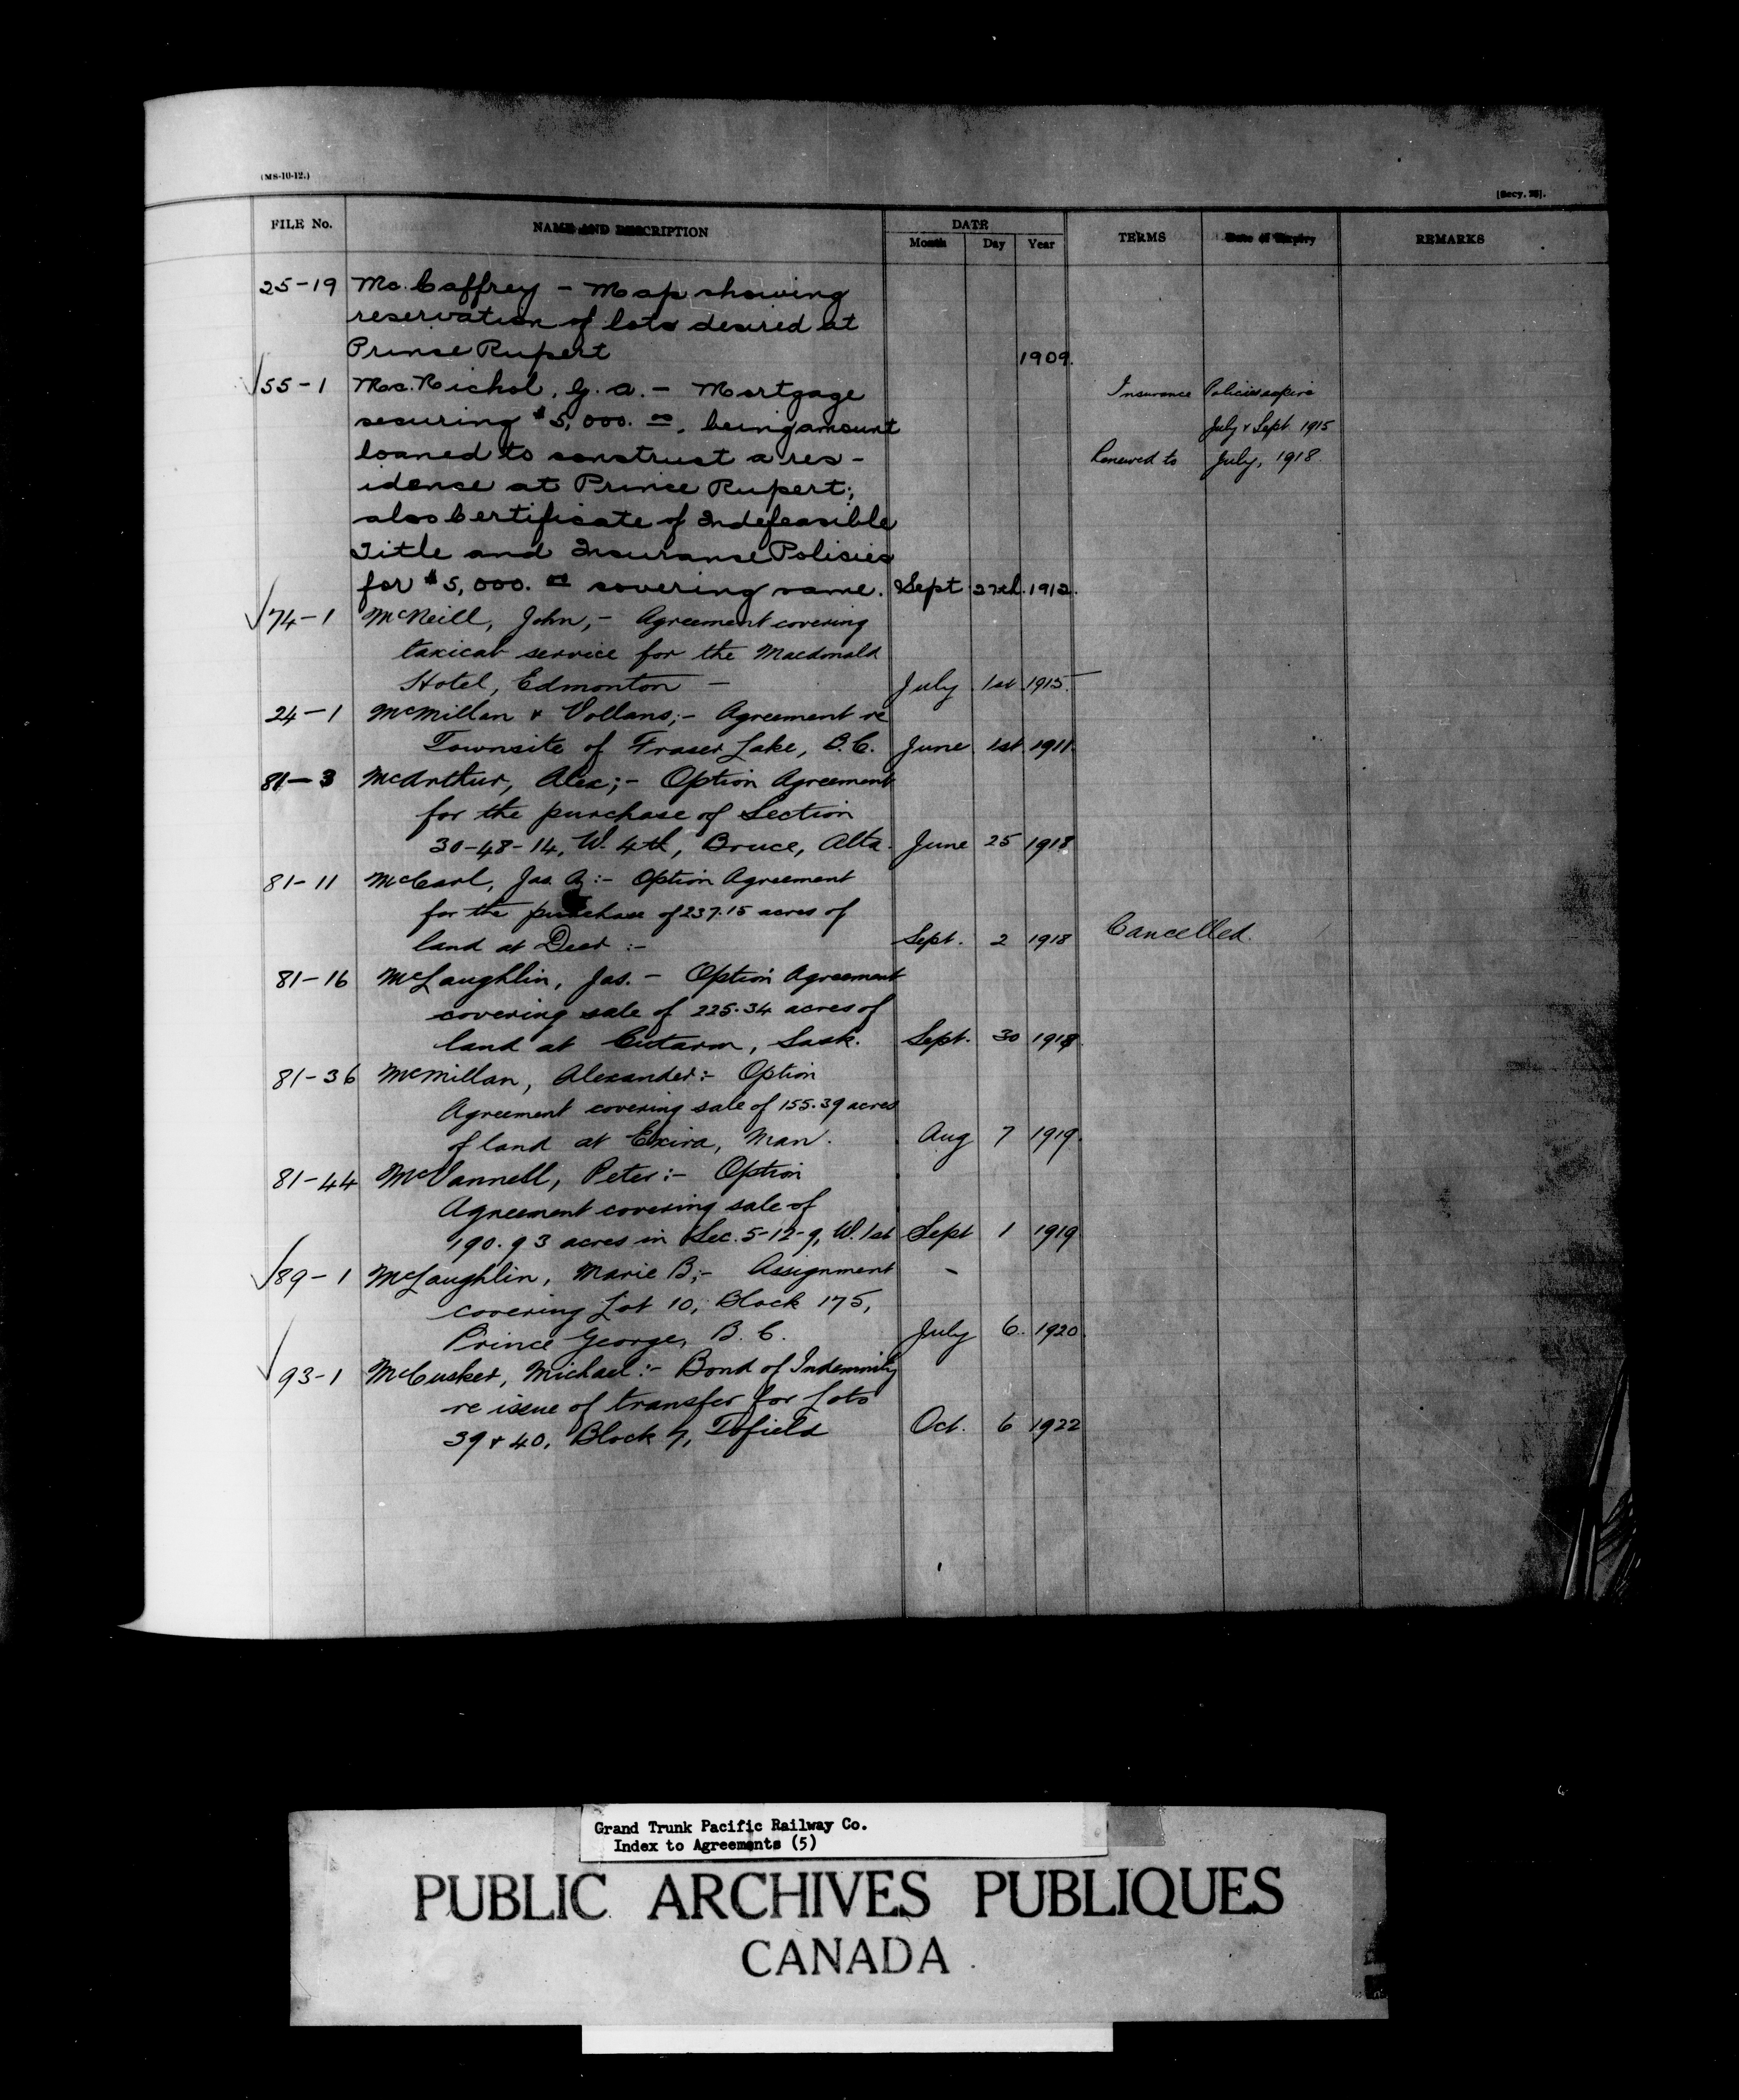 (MS-10-12.)
[Secy. 25].
FILE No. NAME AND DESCRIPTION DATE Month Day Year TERMS Date of Expiry REMARKS
25-19 Mc.Caffrey - Map showing
reservation of lots desired at
Prince Rupert 1909.
√55-1 Mc.Nichol, G. A. - Mortgage Insurance Policies expire
securing $5,000.00, being amount July & Sept. 1915
loaned to construct a res- Renewed to July, 1918.
idence at Prince Rupert;
also Certificate of Indefeasible
Title and Insurance Policies
for $5,000.00 covering same. Sept 27th. 1912.
√74-1 McNeill, John,- Agreement covering
taxicab service for the Macdonald
Hotel, Edmonton - July 1st 1915.
24-1 McMillan & Vollans;- Agreement re
Townsite of Fraser Lake, B.C. June 1st 1911.
81-3 McArthur, Alex;- Option Agreement
for the purchase of Section
30-48-14, W. 4th, Bruce, Alta. June 25 1918
81-11 McCarl, Jas. A:- Option Agreement
for the purchase of 237.15 acres of
land at Deer :- Sept. 2 1918 Cancelled.
81-16 McLaughlin, Jas. - Option Agreement
covering sale of 225.34 acres of
land at Cutarm, Sask. Sept. 30 1918.
81-36 McMillan, Alexander:- Option
Agreement covering sale of 155.39 acres
of land at Exira, Man. Aug 7 1919.
81-44 McVannell, Peter:- Option
Agreement covering sale of
190.93 acres in Sec. 5-12-9, W. 1st Sept 1 1919
√89-1 McLaughlin, Marie B;- Assignment -
covering Lot 10, Block 175,
Prince George, B. C. July 6. 1920.
√93-1 McCusker, Michael:- Bond of Indemnity
re issue of transfer for Lots
39 & 40, Block 7, Tofield Oct. 6 1922
Grand Trunk Pacific Railway Co.
Index to Agreements (5)
PUBLIC ARCHIVES PUBLIQUES
CANADA